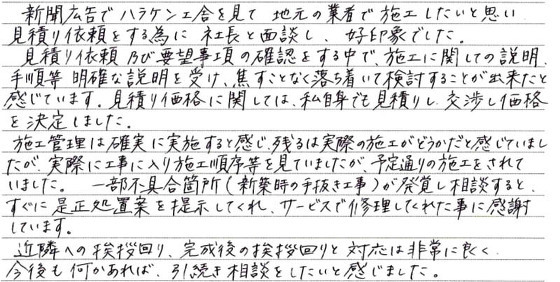 新聞広告でハラケン工舎を見て 地元の業者で施工したいと思い
見積り依頼をする為に 社長と面談し、好印象でした。
見積り依頼 及び要望事項の確認をする中で、施工に関しての説明、
手順等 明確な説明を受け、焦すことなく落ち着いて検討することが出来たと
感じています。見積り価格に関しては、私自身でも見積りし 交渉し価格
を決定しました。
施工管理は確実に実施すると感じ、残るは実際の施工がどうかだと感じていまし
たが、実際に工事に入り施工順序等を見ていましたが、予定通りの施工をされて
いました。 一部不具合箇所(新築時の手抜き工事)が発覚し相談すると、
すぐに是正処置案を提示してくれ、サービスで修理してくれた事に感謝
しています。
近隣への挨拶回り、完成後の挨拶回りと 対応は非常に良く、
今後も何かあれば、引続き相談をしたいと感じました。